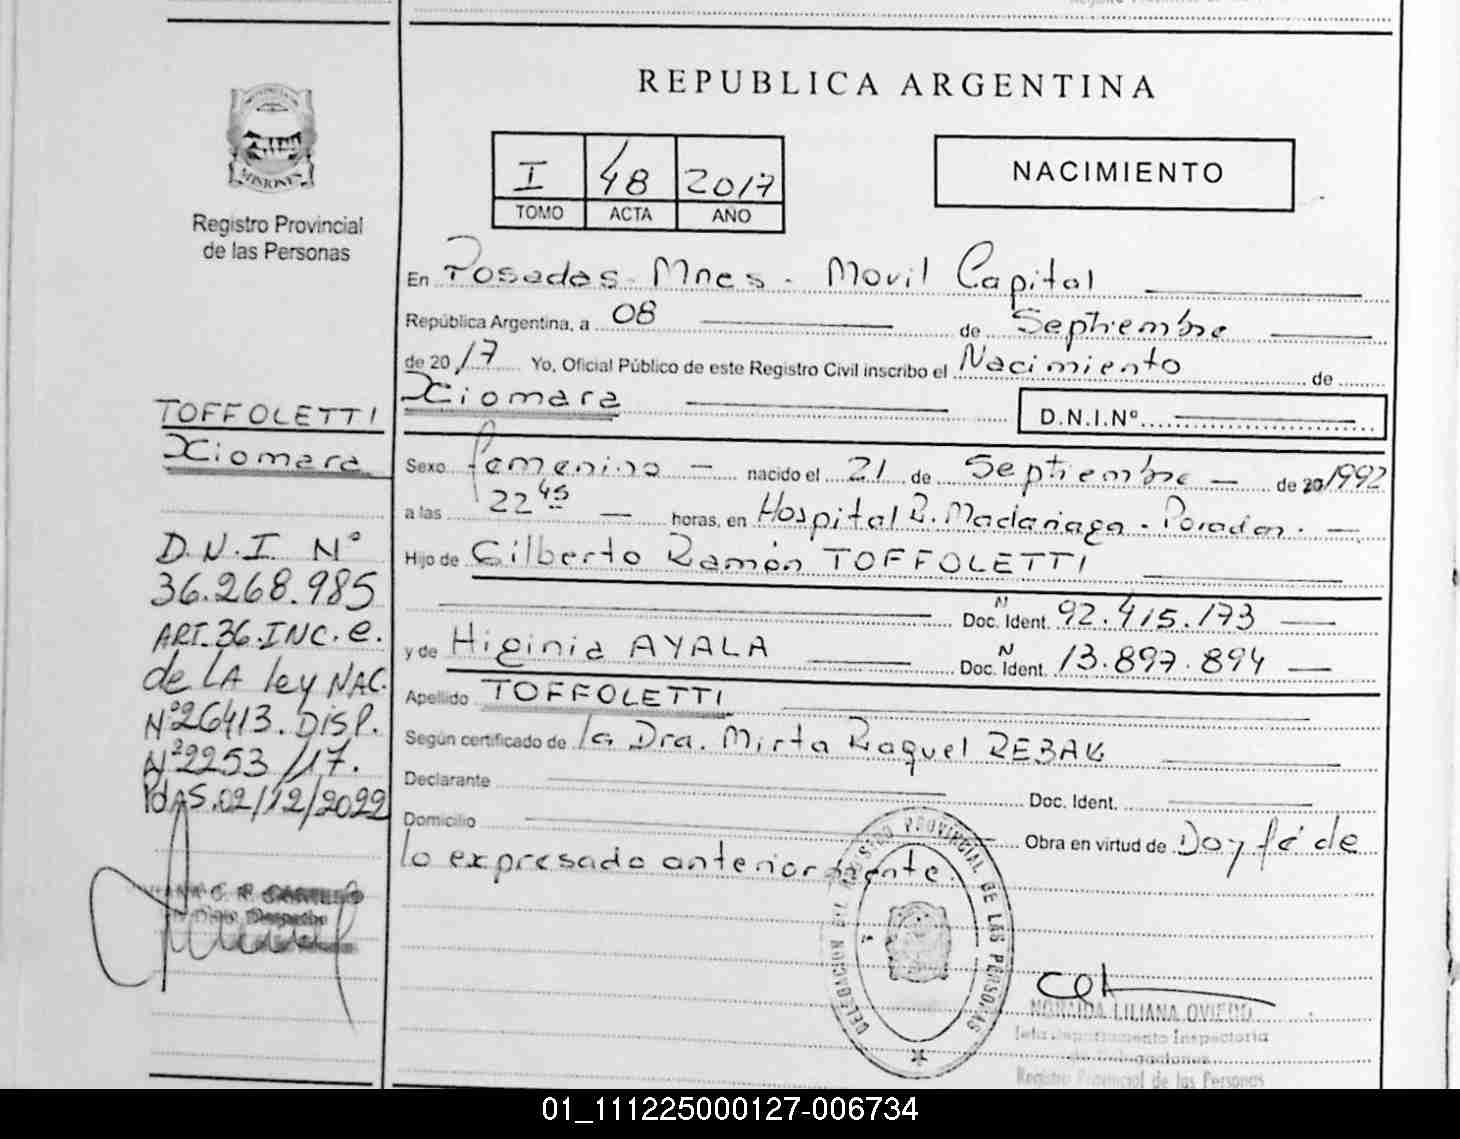 REPUBLICA ARGENTINA
MISIONES
Registro Provincial
de las Personas
I 48 2017
TOMO ACTA AÑO
NACIMIENTO
En Posadas - Mnes - Movil Capital
República Argentina, a 08 de Septiembre
de 2017 Yo, Oficial Público de este Registro Civil inscribo el Nacimiento de
Xiomara D.N.I.Nº
Sexo femenino nacido el 21 de Septiembre de 20 1992
a las 22 45 horas, en Hospital R. Madariaga - Posadas.
Hijo de Gilberto Ramón TOFFOLETTI
Doc. Ident. N 92.415.173
y de Higinia AYALA Doc. Ident. N 13.897.894
Apellido TOFFOLETTI
Según certificado de la Dra. Mirta Raquel REBAK
Declarante Doc. Ident.
Domicilio Obra en virtud de Doy fé de
lo expresado anteriormente.
TOFFOLETTI
Xiomara
D.N.I. Nº
36.268.985
ART.36.INC.e.
de LA ley NAC.
Nº26413.DISP.
Nº2253/17.
PdAS.02/12/2022
REGISTRO PROVINCIAL DE LAS PERSONAS
NORMIDA LILIANA OVIEDO
Jefa Departamento Inspectoria
de Delegaciones
Registro Provincial de las Personas
01_111225000127-006734